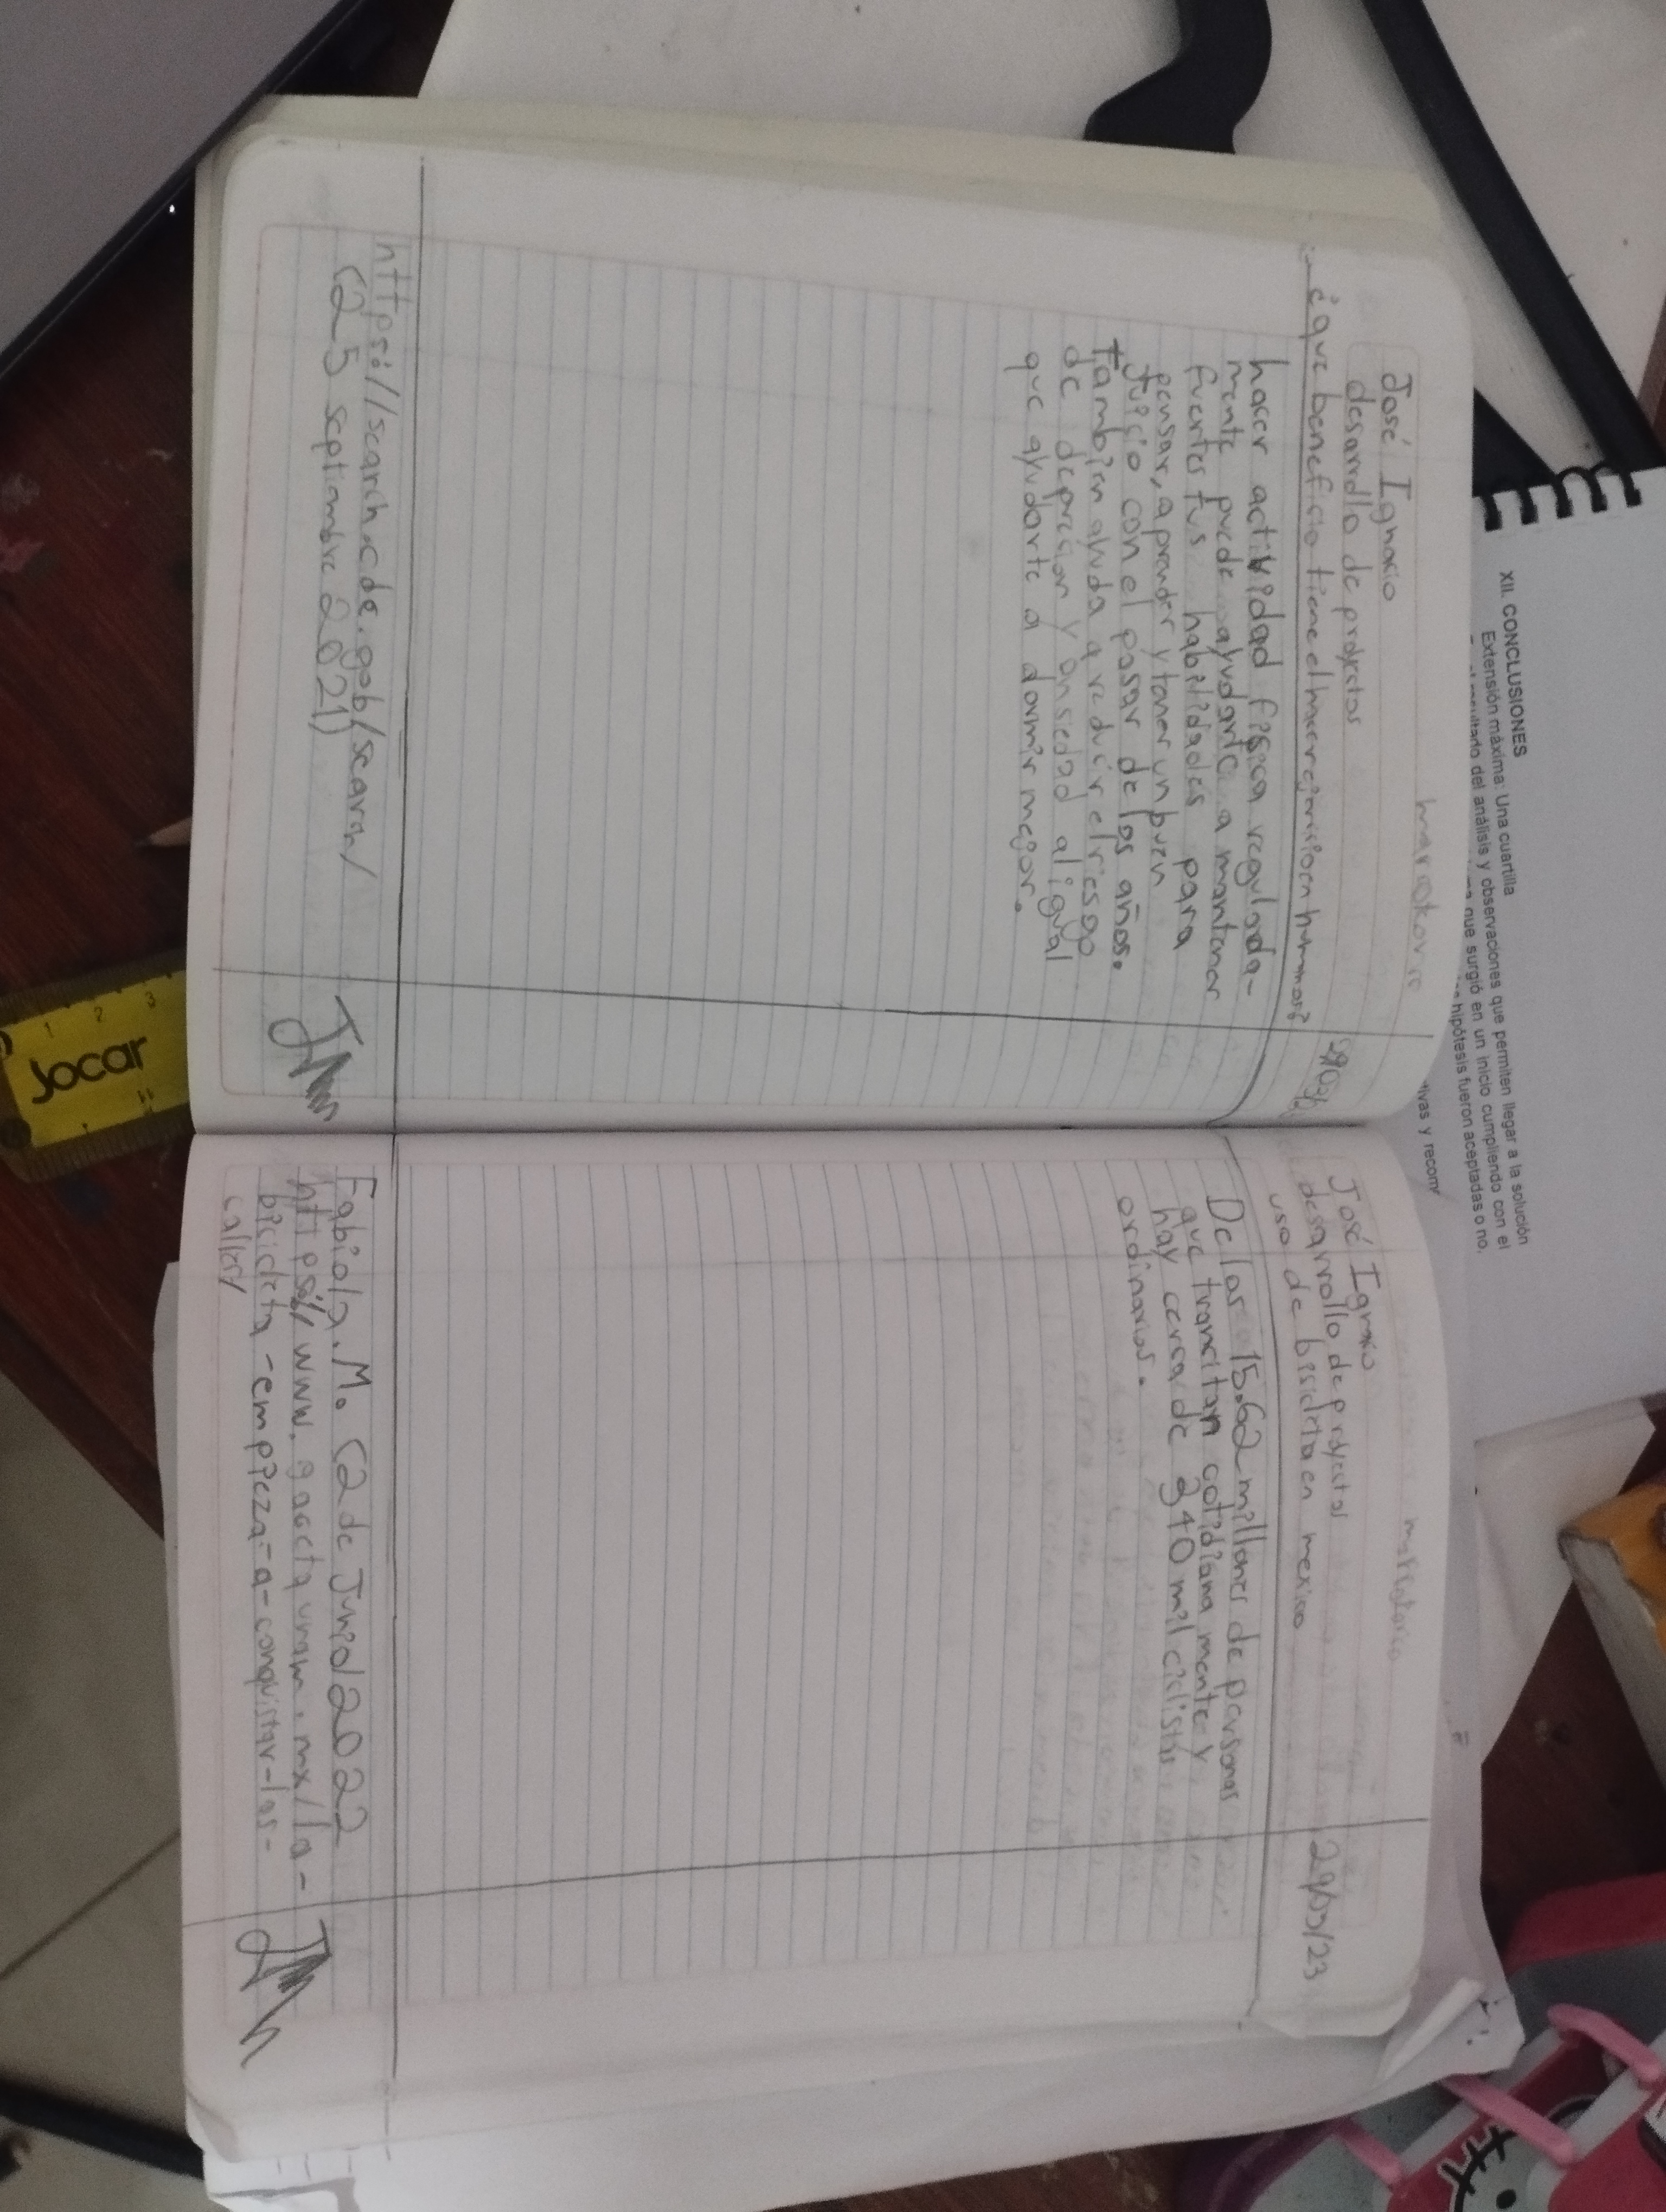 José Ignacio
desarrollo de proyectos
¿que beneficio tiene el hacer ejercicio en humanos?
hacer actividad fisica regularda-
mente puede ayudarte a mantener
fuertes tus habilidades para
pensar, aprender y tener un buen
juicio con el pasar de los años.
también ayuda a reducir el riesgo
de depreción y ansiedad al igual
que ayudarte a dormir mejor.
https://search.cdc.gob/search/
(25 septiembre 2021)
José Ignacio
desarrollo de proyectos
uso de bisicleta en mexico
29/03/23
De los 15.62 millones de personas
que trancitan cotidiana mente y
hay cerca de 340 mil ciclistas
ordinarios.
Fabiola, M. (2 de Junio 2022
https://www.gaceta.unam.mx/la-
bicicleta-empieza-a-conquistar-las-
calles/
XII. CONCLUSIONES
Extensión máxima: Una cuartilla
resultado del análisis y observaciones que permiten llegar a la solución
que surgió en un inicio cumpliendo con el
hipótesis fueron aceptadas o no.
Jocar
1 2 3
11